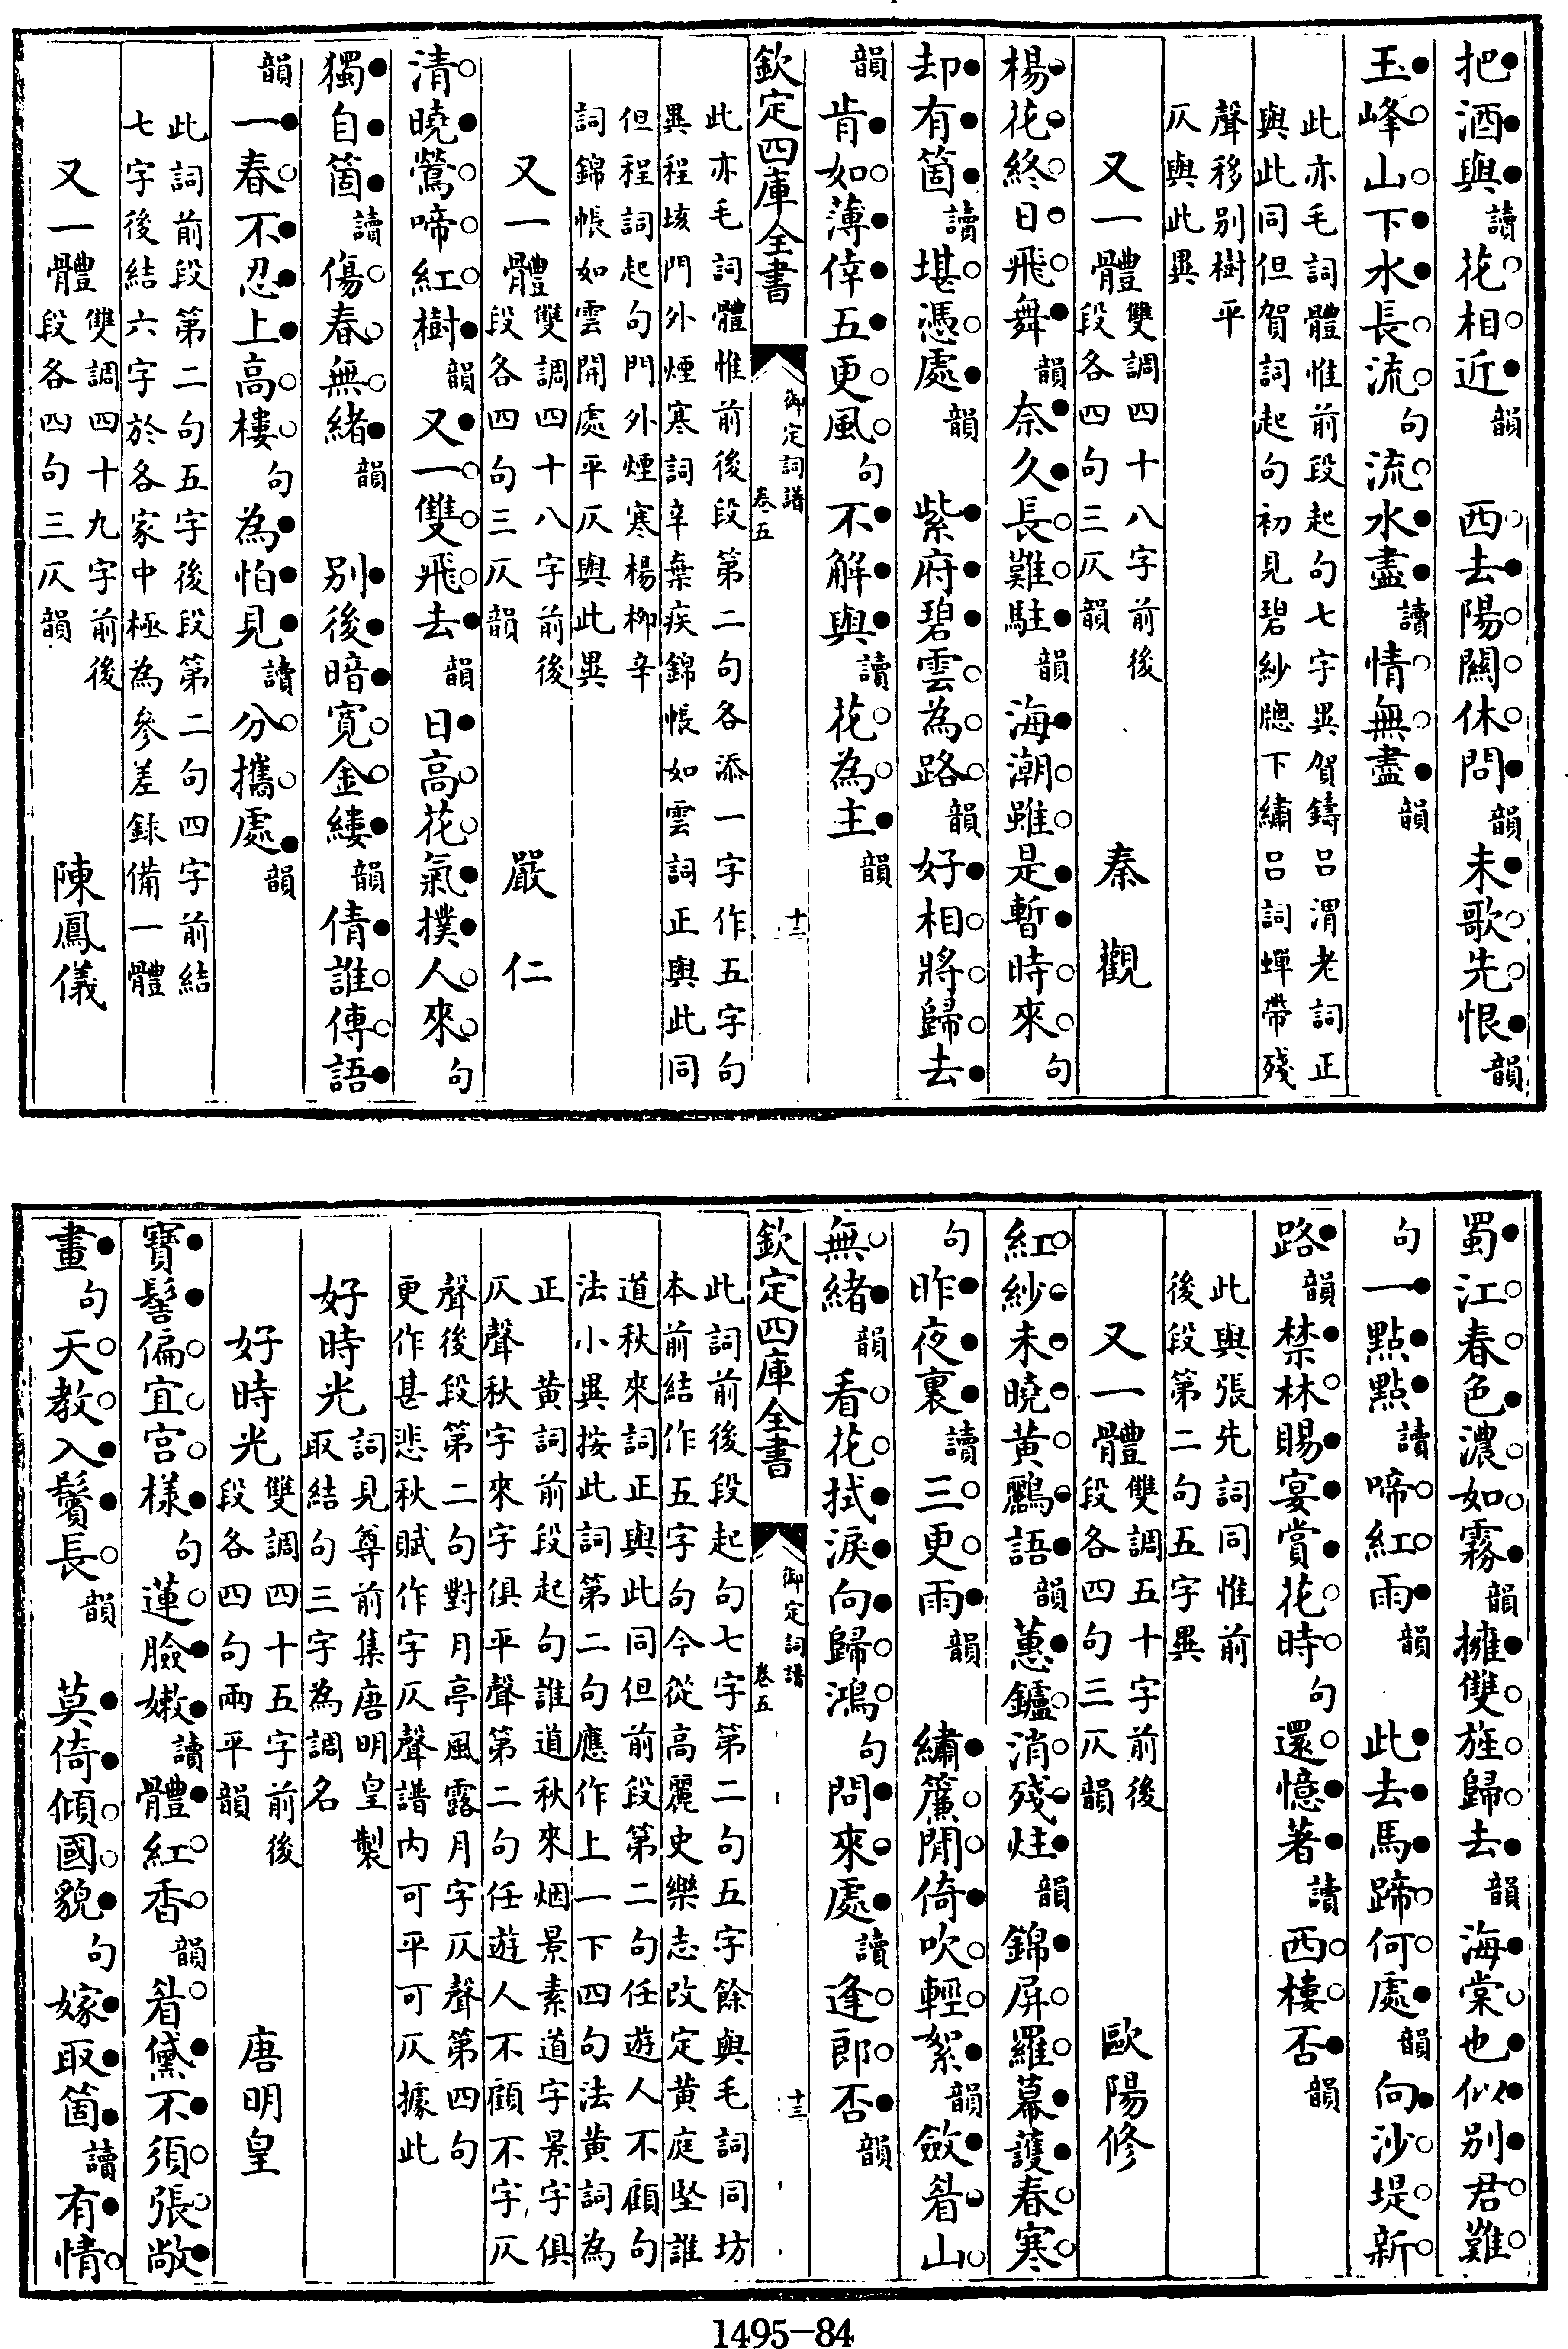 把酒與讀花相近韻　西去陽關休問韻未歌先恨韻
玉峰山下水長流句流水盡讀情無盡韻
此亦毛詞體惟前段起句七字異賀鑄呂渭老詞正
與此同但賀詞起句初見碧紗牕下繡呂詞蟬帶殘
聲移別樹平
仄與此異
又一體雙調四十八字前後
段各四句三仄韻
秦觀
楊花終日飛舞韻奈久長難駐韻海潮雖是暫時來句
却有箇讀堪憑處韻　紫府碧雲為路韻好相將歸去
韻肯如薄倖五更風句不解與讀花為主韻
欽定四庫全書
御定詞譜
卷五
十二
此亦毛詞體惟前後段第二句各添一字作五字句
異程垓門外煙寒詞辛棄疾錦帳如雲詞正與此同
但程詞起句門外煙寒楊柳辛
詞錦帳如雲開處平仄與此異
又一體雙調四十八字前後
段各四句三仄韻
嚴仁
清曉鶯啼紅樹韻又一雙飛去韻日高花氣撲人來句
獨自箇讀傷春無緒韻　別後暗寬金縷韻倩誰傳語
韻一春不忍上高樓句為怕見讀分攜處韻
此詞前段第二句五字後段第二句四字前結
七字後結六字於各家中極為參差錄備一體
又一體雙調四十九字前後
段各四句三仄韻
陳鳳儀
蜀江春色濃如霧韻擁雙旌歸去韻海棠也似別君難
句一點點讀啼紅雨韻　此去馬蹄何處韻向沙堤新
路韻禁林賜宴賞花時句還憶著讀西樓否韻
此與張先詞同惟前
後段第二句五字異
又一體雙調五十字前後
段各四句三仄韻
歐陽修
紅紗未曉黃鸝語韻蕙鑪消殘炷韻錦屏羅幕護春寒
句昨夜裏讀三更雨韻　繡簾閒倚吹輕絮韻斂眉山
無緒韻看花拭淚向歸鴻句問來處讀逢郎否韻
欽定四庫全書
御定詞譜
卷五
十三
此詞前後段起句七字第二句五字餘與毛詞同坊
本前結作五字句今從高麗史樂志改定黃庭堅誰
道秋來詞正與此同但前段第二句任遊人不顧句
法小異按此詞第二句應作上一下四句法黃詞為
正　黃詞前段起句誰道秋來烟景素道字景字俱
仄聲秋字來字俱平聲第二句任遊人不顧不字仄
聲後段第二句對月亭風露月字仄聲第四句
更作甚悲秋賦作字仄聲譜内可平可仄據此
好時光詞見尊前集唐明皇製
取結句三字為調名
好時光雙調四十五字前後
段各四句兩平韻
唐明皇
寶髻偏宜宮様句蓮臉嫩讀體紅香韻眉黛不須張敞
畫句天教入鬢長韻　莫倚傾國貌句嫁取箇讀有情
1495-84